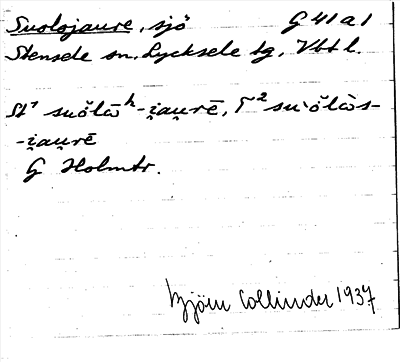 Suolojaure, sjö G 41 a 1
Stensele sn. Lycksele tg, Vbt l.
St¹ suŏlā̀ʰ-i̯au̯rē, T² su̇ŏlā̀s-
-i̯au̯rē
G Holmtr.
Björn Collinder 1937